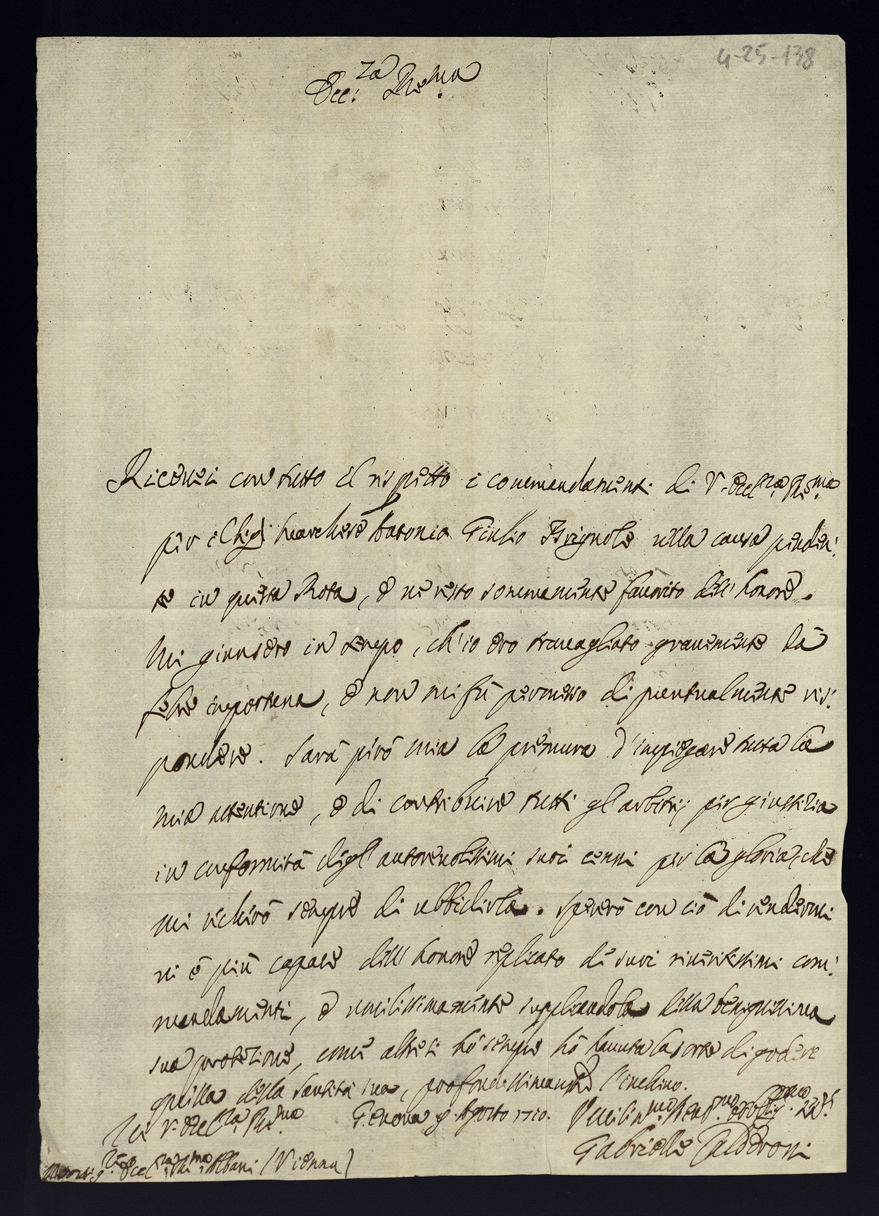 4-25-138
Ecc:za Re:ma
Ricevei con tutto il rispetto i commandamenti di V. Ecc:za Re:ma
per il Sig: Marchese Antonio Giulio Brignole nella causa penden:
te in questa Rota, e ne resto sommamente favorito dell'honore.
Mi giunsero in tempo, ch'io ero travagliato gravemente dà
febre importuna, e non mi fù permesso di puntualmente ris:
pondere. Sarà però mia la premura d'impiegare tutta la
mia attentione, e di contribuire tutti gl'arbitrij per giustitia
in conformità degl'autorevolissimi suoi cenni per la gloria, che
mi richiro sempre di ubbidirla. Sperarò con ciò di rendermi
vi è più capace dell'honore replicato de suoi riveritissimi com:
mandamenti, e umilissimamente supplicandola della benignissima
sua protezione, come altresì hò sempre havuta la sorte di godere
quella della Santità sua, profondissimamente l'inchino.
Di V. Ecc:za Re:ma Genova 9 Agosto 1710.
Gabrielle Calderoni
Monsig:re Ecc:za Re:ma Albani (Vienna)